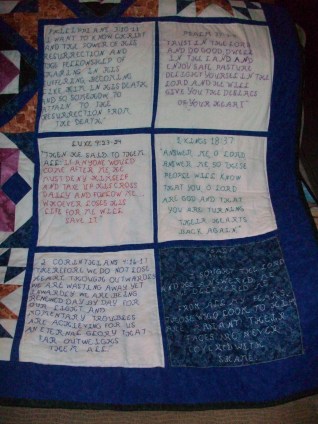 PHILIPPIANS 3:10-11
I WANT TO KNOW CHRIST
AND THE POWER OF HIS
RESURRECTION AND
THE FELLOWSHIP OF
SHARING IN HIS
SUFFERING BECOMING
LIKE HIM IN HIS DEATH
AND SO SOMEHOW TO
ATTAIN TO THE
RESURRECTION FROM
THE DEATH.
PSALM
TRUST IN THE LORD
AND DO GOOD DWELL
IN THE LAND AND
ENJOY SAFE PASTURE
DELIGHT YOURSELF IN THE
LORD AND HE WILL
GIVE YOU THE DESIRES
OF YOUR HEART
LUKE 9:23-24
THEN HE SAID TO THEM
ALL IF ANYONE WOULD
COME AFTER ME HE
MUST DENY HIMSELF
AND TAKE UP HIS CROSS
DAILY AND FOLLOW ME.
WHOEVER LOSES HIS
LIFE FOR ME WILL
SAVE IT"
1 KINGS 18:37
"ANSWER ME O LORD
ANSWER ME SO THESE
PEOPLE WILL KNOW
THAT YOU O LORD
ARE GOD AND THAT
YOU ARE TURNING
THEIR HEARTS
BACK AGAIN."
2 CORINTHIANS 4:16-17
THEREFORE WE DO NOT LOSE
HEART THOUGH OUTWARDLY
WE ARE WASTING AWAY YET
INWARDLY WE ARE BEING
RENEWED DAY BY DAY FOR
OUR LIGHT AND
MOMENTARY TROUBLES
ARE ACHIEVING FOR US
AN ETERNAL GLORY THAT
FAR OUTWEIGHS
THEM ALL.
THE LORD
THOSE WHO LOOK TO HIM
ARE RADIANT THEIR
FACES ARE NEVER
COVERED WITH
SHAME